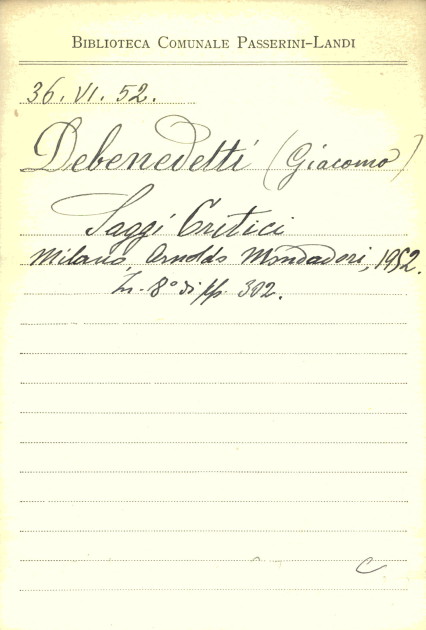 BIBLIOTECA COMUNALE PASSERINI-LANDI
36. VI. 52.
Debenedetti (Giacomo)
Saggi Critici
Milano, Arnoldo Mondadori, 1952.
In-8° di pp. 302.
C